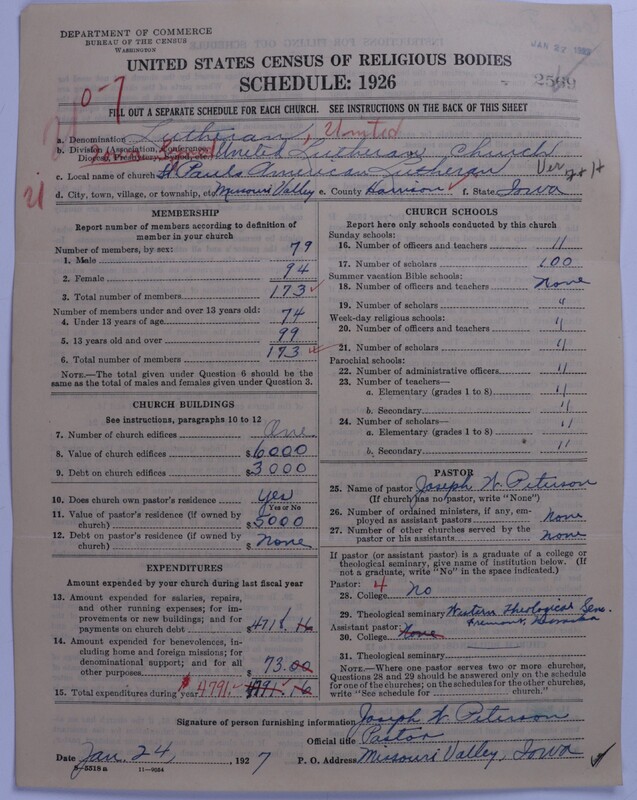 DEPARTMENT OF COMMERCE
BUREAU OF THE CENSUS
WASHINGTON
JAN 27
UNITED STATES CENSUS OF RELIGIOUS BODIES
SCHEDULE: 1926
2569
0-7
FILL OUT A SEPARATE SCHEDULE FOR EACH CHURCH. SEE INSTRUCTIONS ON THE BACK OF THIS SHEET
a. Denomination Lutheran, United
b. Division (Association, Conference, Diocese, Presbytery, Synod, etc.) United Lutheran Church
c. Local name of church St Pauls American Lutheran
d. City, town, village, or township, etc. Missouri Valley e. County Harrison f. State Iowa
MEMBERSHIP
Report number of members according to definition of
member in your church
Number of members, by sex:
1. Male 79
2. Female 94
3. Total number of members 173
Number of members under and over 13 years old:
4. Under 13 years of age 74
5. 13 years old and over 99
6. Total number of members 173
NOTE.—The total given under Question 6 should be the
same as the total of males and females given under Question 3.
CHURCH BUILDINGS
See instructions, paragraphs 10 to 12
7. Number of church edifices One
8. Value of church edifices $6000
9. Debt on church edifices $3000
10. Does church own pastor's residence yes
Yes or No
11. Value of pastor's residence (if owned by
church) $5000
12. Debt on pastor's residence (if owned by
church) $ None
EXPENDITURES
Amount expended by church during last fiscal year
13. Amount expended for salaries, repairs,
and other running expenses; for im-
provements or new buildings; and for
payments on church debt $4718.16
14. Amount expended for benevolences, in-
cluding home and foreign missions; for
denominational support; and for all
other purposes $73.00
15. Total expenditures during year $4791. 4791.16
CHURCH SCHOOLS
Report here only schools conducted by this church
Sunday schools:
16. Number of officers and teachers 11
17. Number of scholars 100
Summer vacation Bible schools:
18. Number of officers and teachers None
19. Number of scholars "
Week-day religious schools:
20. Number of officers and teachers "
21. Number of scholars "
Parochial schools:
22. Number of administrative officers "
23. Number of teachers—
a. Elementary (grades 1 to 8) "
b. Secondary "
24. Number of scholars—
a. Elementary (grades 1 to 8) "
b. Secondary "
PASTOR
25. Name of pastor Joseph W. Peterson
(If church has no pastor, write "None")
26. Number of ordained ministers, if any, em-
ployed as assistant pastors None
27. Number of other churches served by the
pastor or his assistants None
If pastor (or assistant pastor) is a graduate of a college or
theological seminary, give name of institution below. (If
not a graduate, write "No" in the space indicated.)
Pastor: 4
28. College No
29. Theological seminary Western Theological Sem.
Fremont, Nebraska
Assistant pastor:
30. College None
31. Theological seminary
NOTE.—Where one pastor serves two or more churches,
Questions 28 and 29 should be answered only on the schedule
for one of the churches; on the schedules for the other churches,
write "See schedule for church."
Signature of person furnishing information Joseph W. Peterson
Official title Pastor
Date Jan. 24, 1927 P. O. Address Missouri Valley, Iowa
8—5518a 11—9084